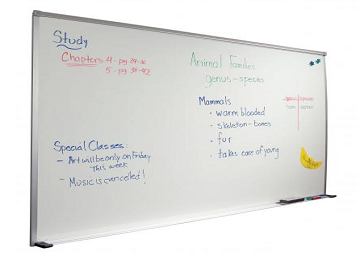 Study
Chapters 4 - pg.
5 - pg.
Special Classes:
- Art will be only on Friday
this week
- Music is cancelled!
Animal Families
genus - species
Mammals
• warm blooded
• skeleton - bones
• fur
• takes care of young